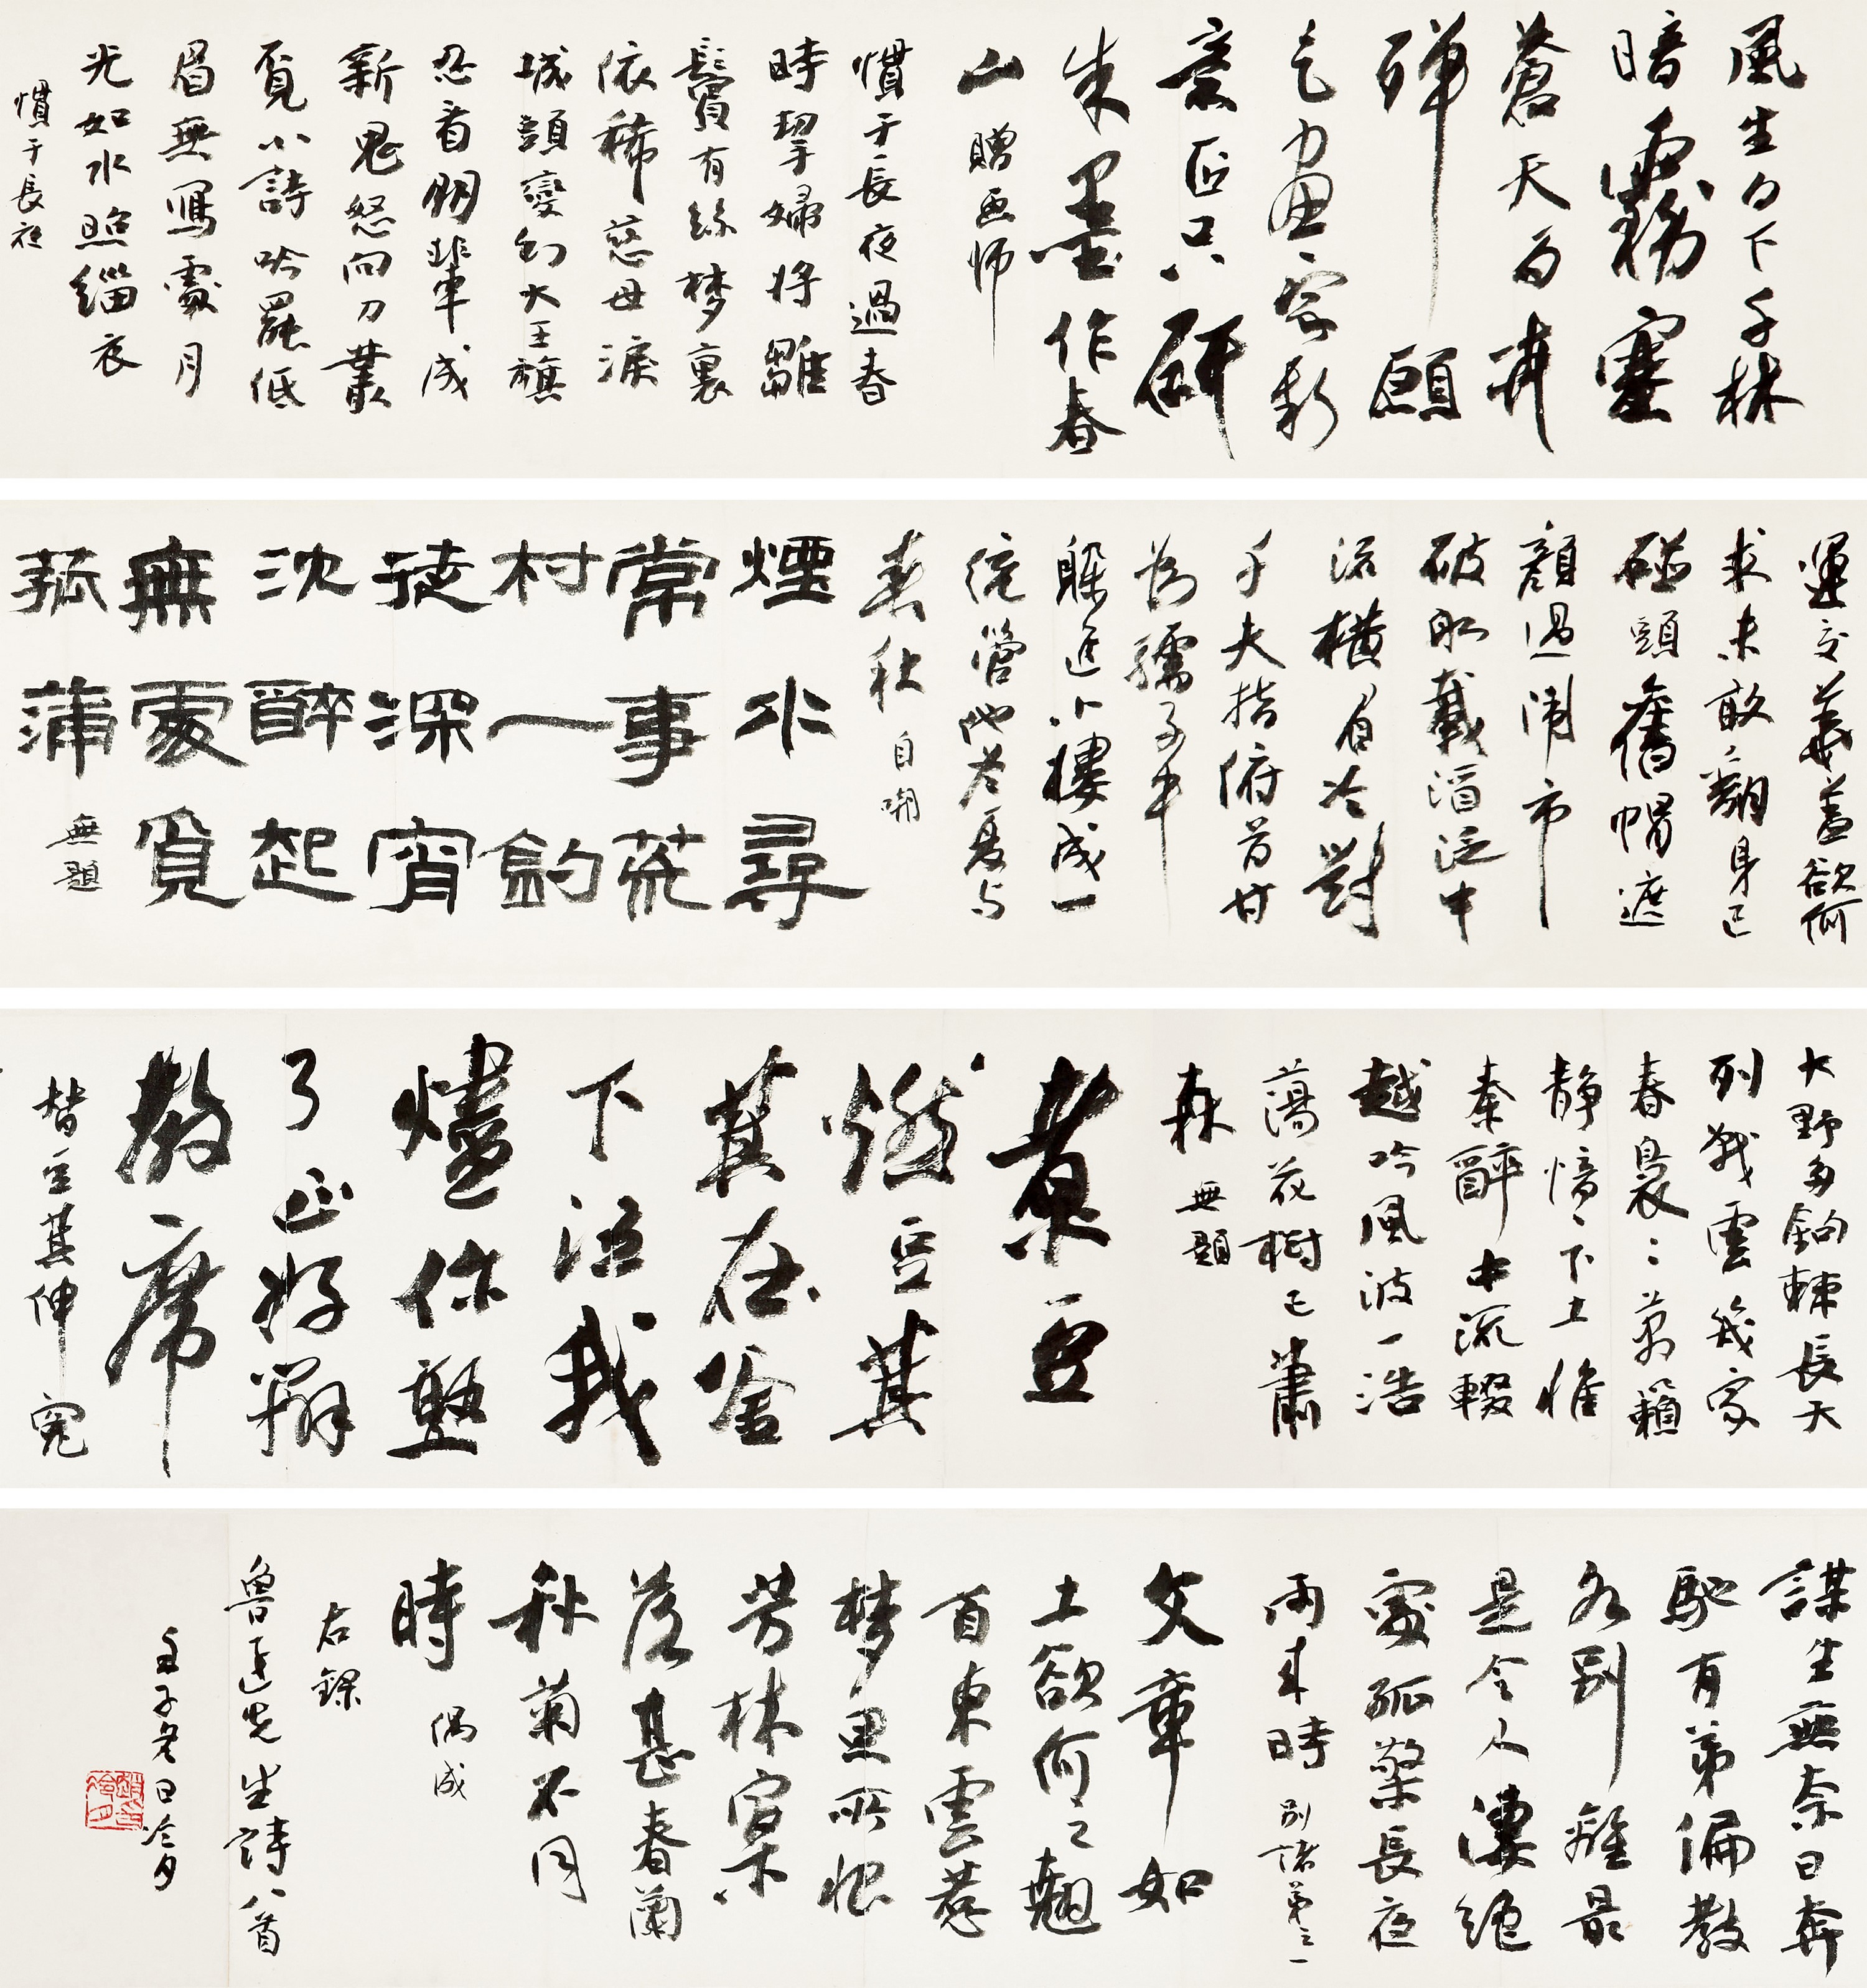 風生白下千林
暗霧塞
蒼天百卉
殫願
乞畫家新
意匠只研
朱墨作春
山 贈画師
慣于長夜過春
時挈婦將雛
鬢有絲夢裏
依稀慈母淚
城頭變幻大王旗
忍看朋輩成
新鬼怒向刀叢
覓小詩吟罷低
眉無寫處月
光如水照緇衣
慣于長夜
運交華蓋欲何
求未敢翻身已
碰頭舊帽遮
顏過鬧市
破船載酒泛中
流橫眉冷對
千夫指俯首甘
為孺子牛
躲進小樓成一
統管他冬夏与
春秋 自嘲
煙水尋
常事荒
村一釣
徒深宵
沈醉起
無處覓
菰蒲 無題
大野多鉤棘長天
列戰雲幾家
春裊〻萬籟
靜愔〻下土惟
秦醉中流輟
越吟風波一浩
蕩花樹已蕭
森 無題
煮豆
燃豆萁
萁在釜
下泣我
燼你熟
了正好辦
教席
替豆萁伸冤
謀生無奈日奔
馳有弟偏教
各別離最
是令人淒絕
處孤檠長夜
雨來時 別諸弟之一
文章如
土欲何之翹
首東雲惹
夢思所恨
芳林寥
落甚春蘭
秋菊不同
時 偶成
右録
魯迅先生詩八首
壬子冬日冷月